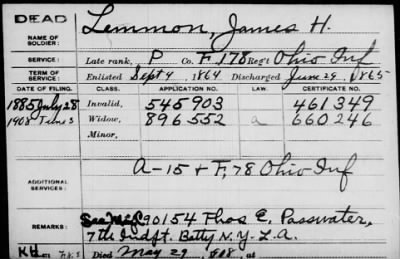 DEAD
NAME OF SOLDIER: Lemmon, James H.
SERVICE: Late rank, P Co. F, 178 Reg't Ohio Inf
TERM OF SERVICE: Enlisted Sept 9, 1864 Discharged June 29, 1865
DATE OF FILING. CLASS. APPLICATION NO. LAW. CERTIFICATE NO.
1885 July 28 Invalid, 545903 461349
1908 June 3 Widow, 896552 a 660246
Minor,
ADDITIONAL SERVICES: A-15 & F, 78 Ohio Inf
REMARKS: See 90154 Thos E. Passwater,
7th Indpt. Batty N.Y. L.A.
Died May 29, 1908, at